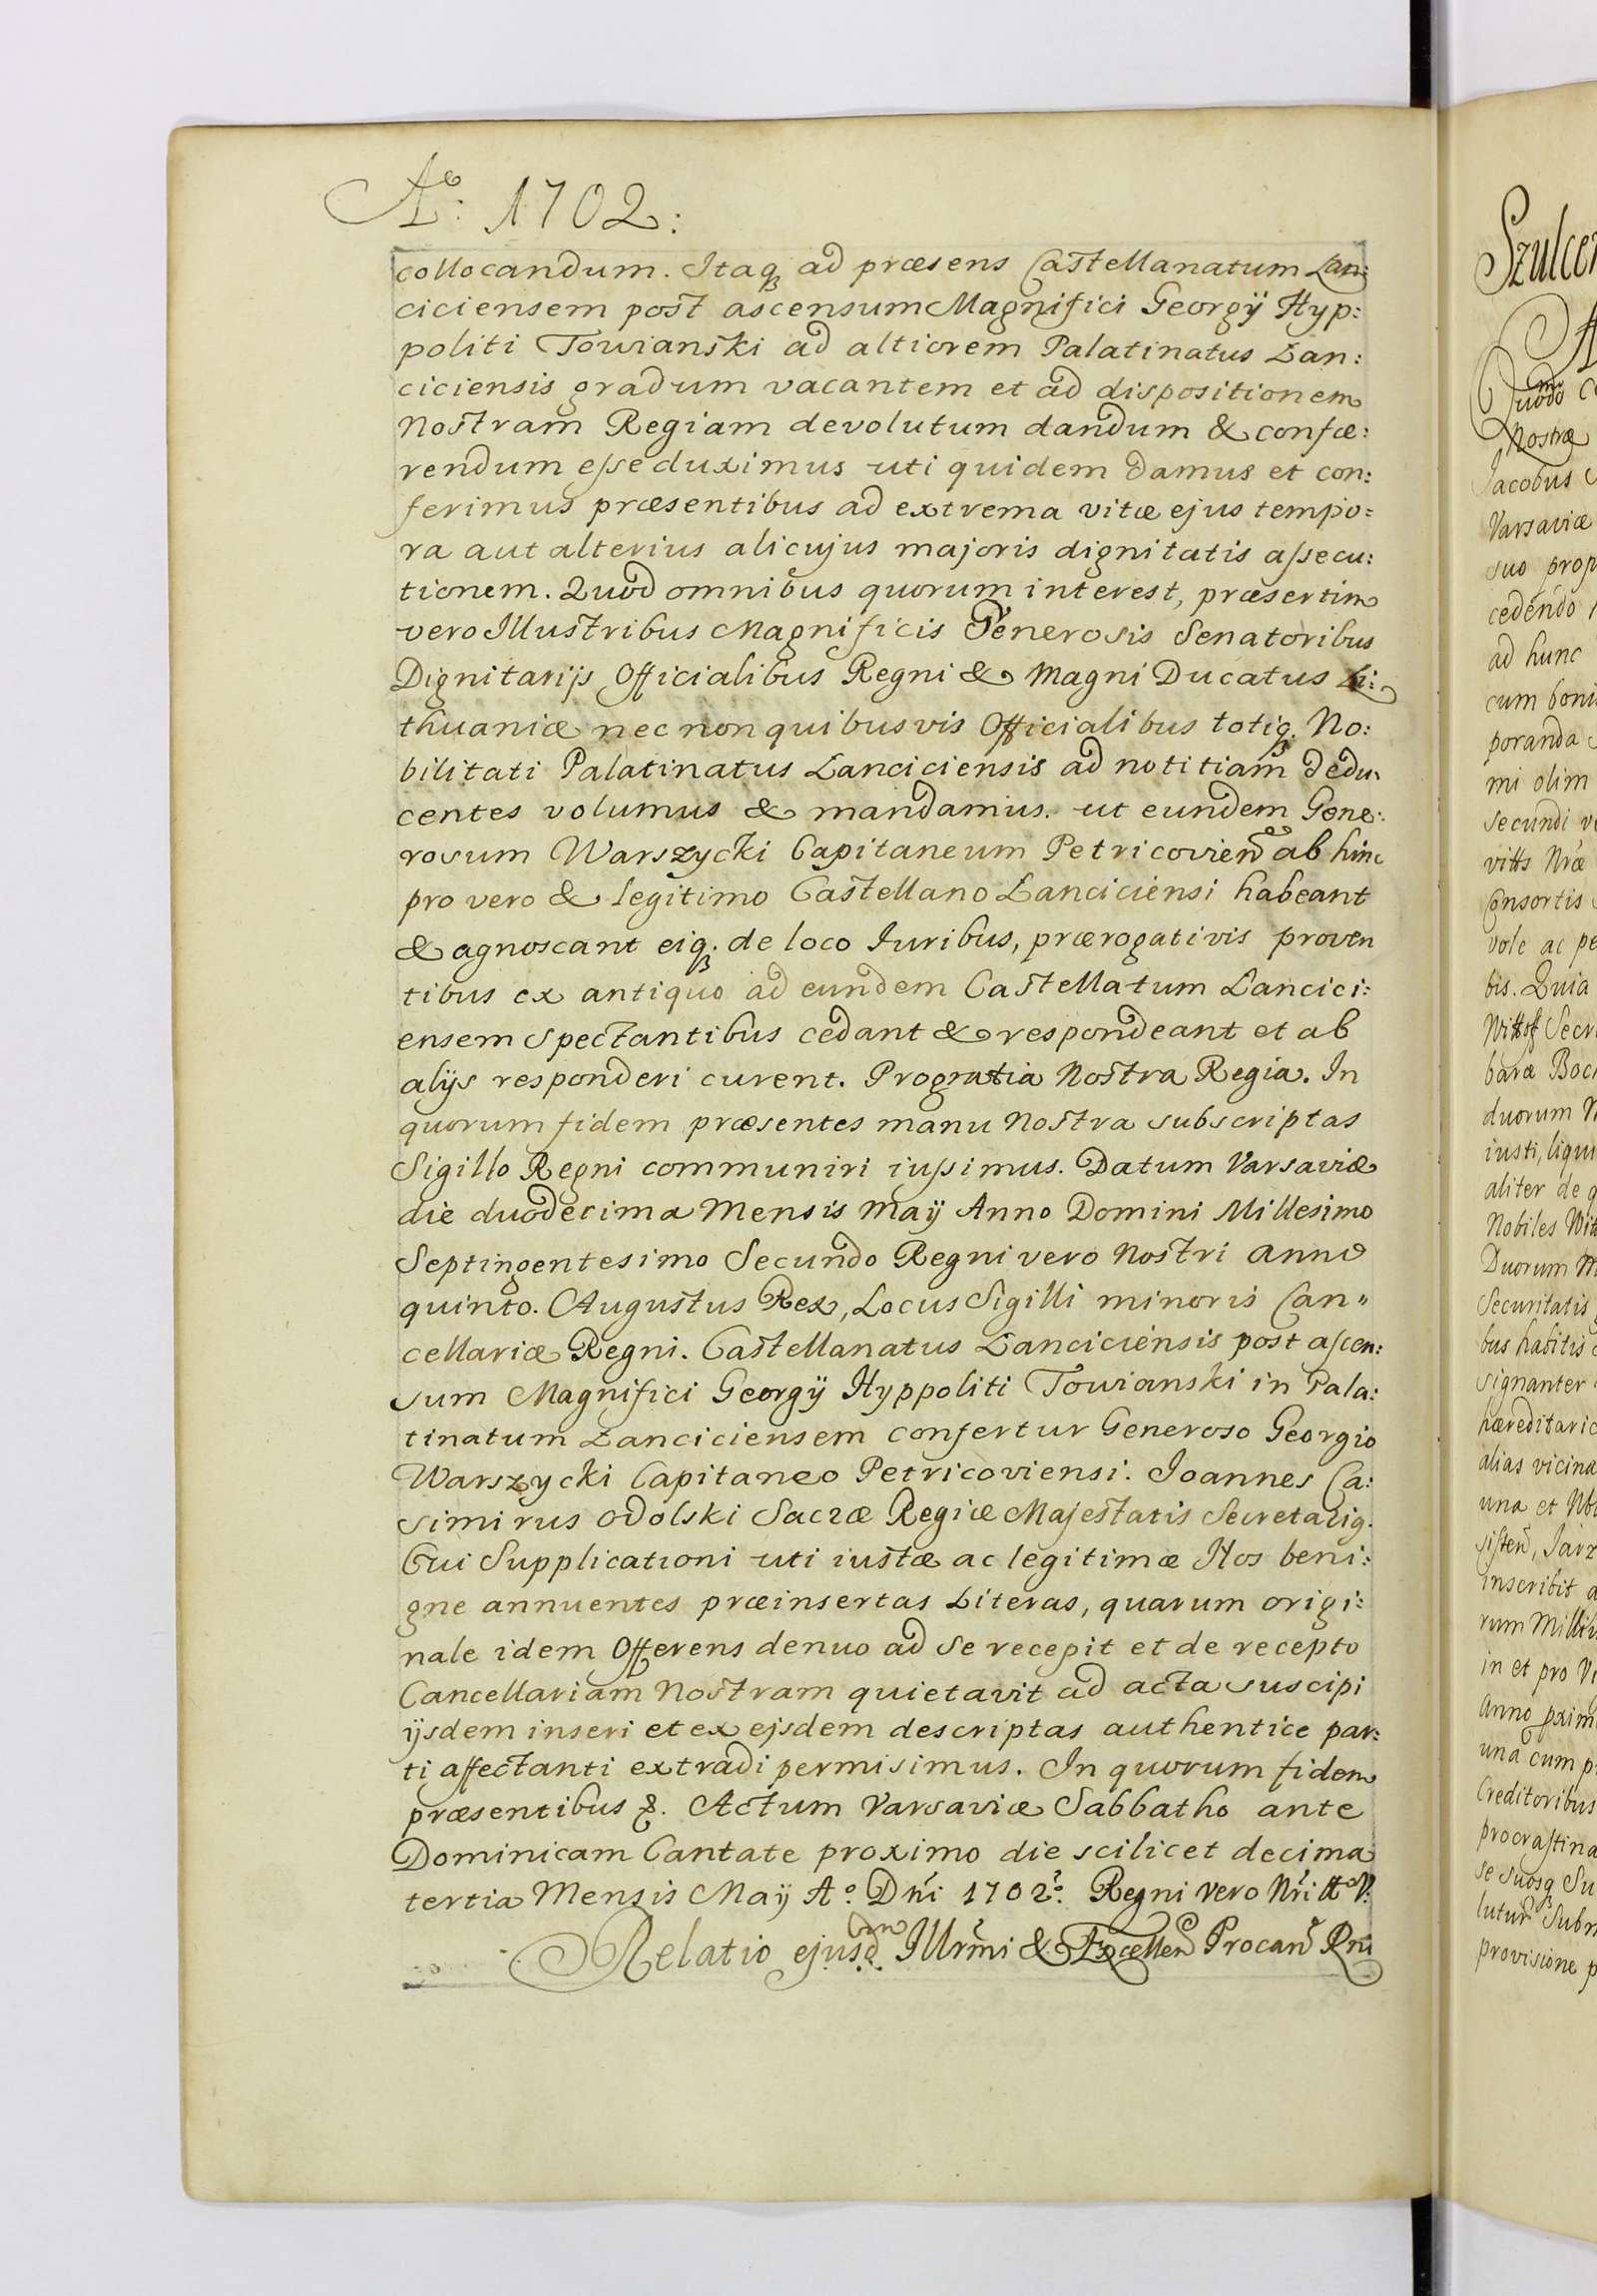 Aº: 1702:
collocandum. Itaqꝫ ad præsens Castellanatum Lan:
ciciensem post ascensum Magnifici Georgÿ Hyp:
politi Towianski ad altiorem Palatinatus Lan:
ciciensis gradum vacantem et ad dispositionem
Nostram Regiam devolutum dandum & confæ:
rendum esse duximus uti quidem damus et con:
ferimus præsentibus ad extrema vitæ ejus tempo:
ra aut alterius alicujus majoris dignitatis assecu:
tionem. Quod omnibus quorum interest, præsertim
vero Illustribus Magnificis Generosis Senatoribus
Dignitarijs Officialibus Regni & Magni Ducatus Li:
thuaniæ nec non quibusvis Officialibus totiqꝫ. No:
bilitati Palatinatus Lanciciensis ad notitiam dedu:
centes volumus & mandamus. ut eundem Gene:
rosum Warszycki Capitaneum Petricovien̄ ab hinc
pro vero & legitimo Castellano Lanciciensi habeant
& agnoscant eiqꝫ. de loco Iuribus, prærogativis proven
tibus ex antiquo ad eundem Castellatum Lancici:
ensem spectantibus cedant & respondeant et ab
alijs responderi curent. Pro gratia Nostra Regia. In
quorum fidem præsentes manu Nostra subscriptas
Sigillo Regni communiri iussimus. Datum Varsaviæ
die duodecima Mensis Maÿ Anno Domini Millesimo
Septingentesimo Secundo Regni vero Nostri Anno
quinto. Augustus Rex, Locus Sigilli minoris Can"
cellariæ Regni. Castellanatus Lanciciensis post ascen:
sum Magnifici Georgÿ Hyppoliti Towianski in Pala:
tinatum Lanciciensem confertur Generoso Georgio
Warszycki Capitaneo Petricoviensi. Joannes Ca:
simirus Odolski Sacræ Regiæ Majestatis Secretariq.
Cui Supplicationi uti iustæ ac legitimæ Nos beni:
gne annuentes præinsertas Literas, quarum origi:
nale idem Offerens denuo ad se recepit et de recepto
Cancellariam Nostram quietavit ad acta suscipi
ijsdem inseri et ex ejsdem descriptas authentice par:
ti affectanti extradi permisimus. In quorum fidem
præsentibus &. Actum Varsaviæ Sabbatho ante
Dominicam Cantate proximo die scilicet decima
tertia Mensis Maÿ Aº. Dn̄i 1702º. Regni vero Nr̄i Aº V.
Relatio ejusd Illrmi & Excellen̄ Procan̄ Rni
Nostræ
Jacobus
Varsaviæ
suo prop
cedendo
ad hunc
cum boni
poranda
mi olim
secundi
Consortis
vole ac pe
bis. Quia
duorum
iusti, liqui
aliter de q
Nobiles
Duorum
Securitatis
bus habitis
signanter
hæreditario
alias vicina
una et
inscribit a
in et pro
Anno
una cum p
Creditoribus
procrastina
provisione p